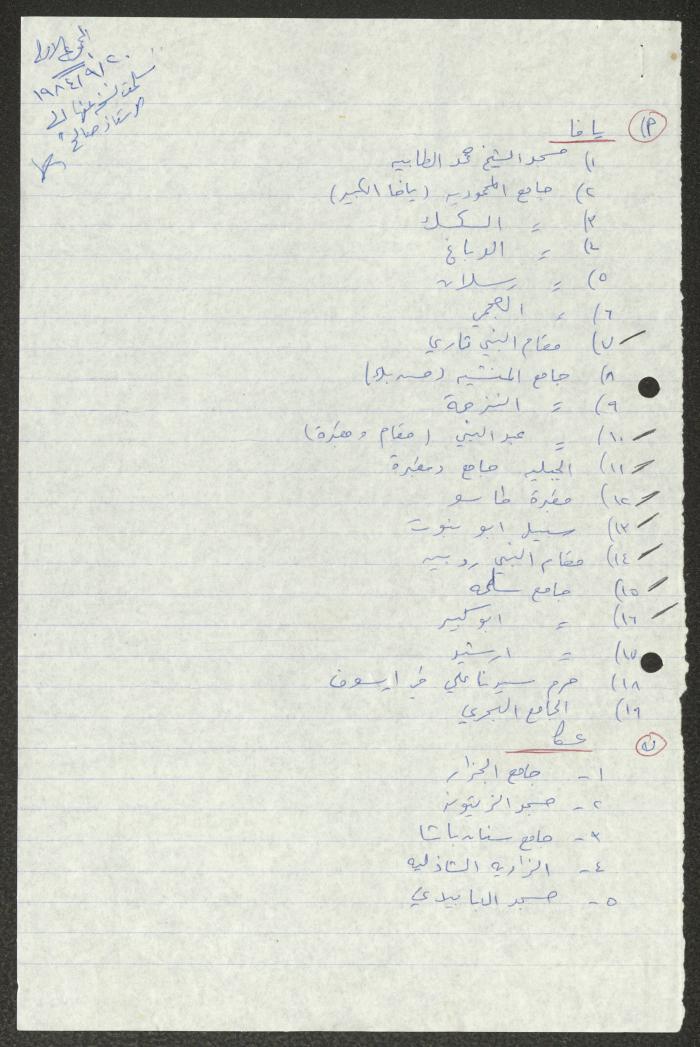 ١٩٨٤/٩/٢٠
م) يافا
١) مسجد الشيخ محمد الطابيه
٢) جامع المحموديه (يافا الكبير)
٣)〃 السكسك
٤) 〃 الدباغ
٥) 〃 رسلان
٦) 〃 العجمي
٧) مقام النبي قاري
٨) جامع المنشيه (حسن بك)
٩) 〃 النزهة
١٠) 〃 عبد النبي (مقام ومقبرة)
١١) الجبليه جامع ومقبرة
١٢) مقبرة طاسو
١٣) سبيل ابو نبوت
١٤) مقام النبي روبين
١٥) جامع سلمه
١٦) 〃 ابو كبير
١٧) 〃 ارشيد
١٨) حرم سيدنا علي في ارسوف
١٩) الجامع البحري
ن عكا
١- جامع الجزار
٢- مسجد الزيتونه
٣- جامع سنان باشا
٤- الزاويه الشاذليه
٥- مسجد